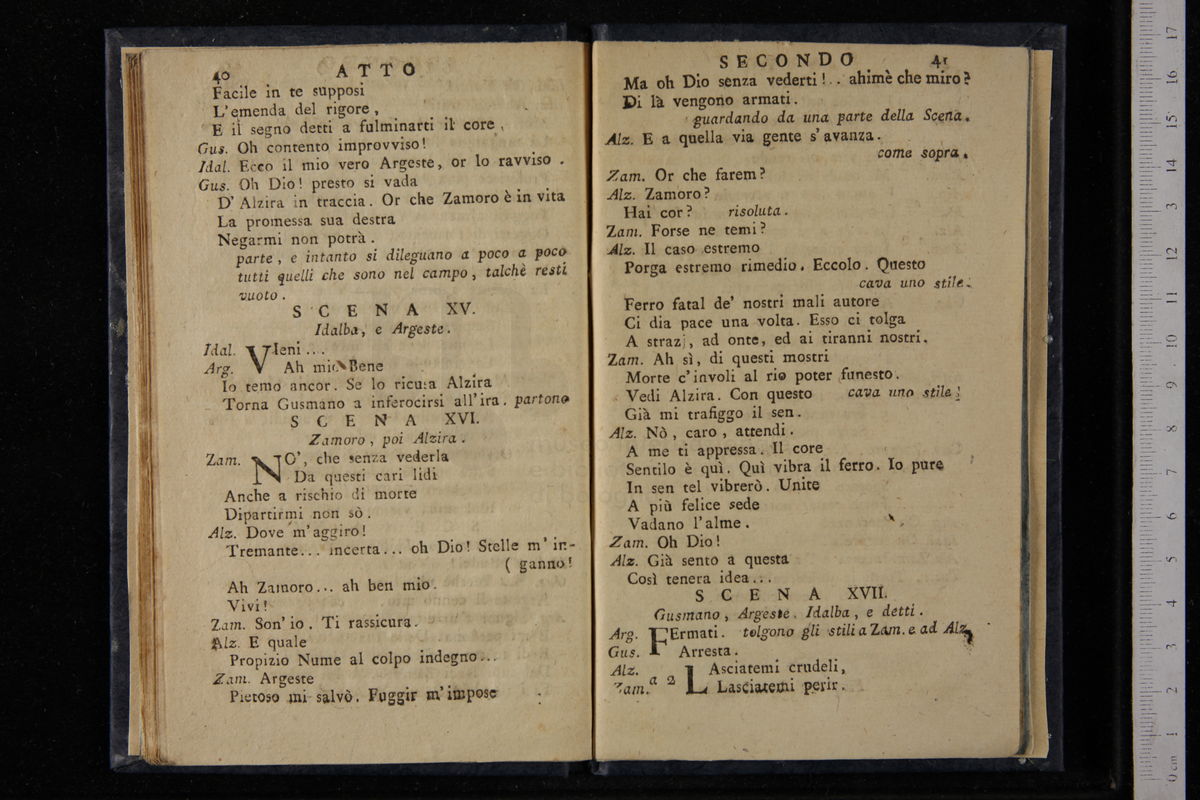 40 ATTO
Facile in te supposi
L'emenda del rigore,
E il segno detti a fulminarti il core,
Gus. Oh contento improvviso!
Idal. Ecco il mio vero Argeste, or lo ravviso.
Gus. Oh Dio! presto si vada
D' Alzira in traccia. Or che Zamoro è in vita
La promessa sua destra
Negarmi non potrà.
parte, e intanto si dileguano a poco a poco
tutti quelli che sono nel campo, talchè resti
vuoto.
SCENA XV.
Idalba, e Argeste.
Idal. VIeni...
Arg. Ah mio Bene
Io temo ancor. Se lo ricusa Alzira
Torna Gusmano a inferocirsi all'ira. partono
SCENA XVI.
Zamoro, poi Alzira.
Zam. NO', che senza vederla
Da questi cari lidi
Anche a rischio di morte
Dipartirmi non sò.
Alz. Dove m'aggiro!
Tremante... incerta... oh Dio! Stelle m' in-
( ganno!
Ah Zamoro... ah ben mio.
Vivi!
Zam. Son' io. Ti rassicura.
Alz. E quale
Propizio Nume al colpo indegno...
Zam. Argeste
Pietoso mi salvò. Fuggir m'impose
SECONDO 41
Ma oh Dio senza vederti!.. ahimè che miro?
Di là vengono armati.
guardando da una parte della Scena.
Alz. E a quella via gente s'avanza.
come sopra.
Zam. Or che farem?
Alz. Zamoro?
Hai cor? risoluta.
Zam. Forse ne temi?
Alz. Il caso estremo
Porga estremo rimedio. Eccolo. Questo
cava uno stile.
Ferro fatal de' nostri mali autore
Ci dia pace una volta. Esso ci tolga
A strazj, ad onte, ed ai tiranni nostri.
Zam. Ah sì, di questi mostri
Morte c'involi al rio poter funesto.
Vedi Alzira. Con questo cava uno stile;
Già mi trafiggo il sen.
Alz. Nò, caro, attendi.
A me ti appressa. Il core
Sentilo è quì. Quì vibra il ferro. Io pure
In sen tel vibrerò. Unite
A più felice sede
Vadano l'alme.
Zam. Oh Dio!
Alz. Già sento a questa
Così tenera idea...
SCENA XVII.
Gusmano, Argeste, Idalba, e detti.
Arg. FErmati. tolgono gli stili a Zam. e ad Alz.
Gus. Arresta.
Alz. a 2 LAsciatemi crudeli,
Zam. Lasciatemi perir.
0 cm 1 2 3 4 5 6 7 8 9 10 11 12 13 14 15 16 17